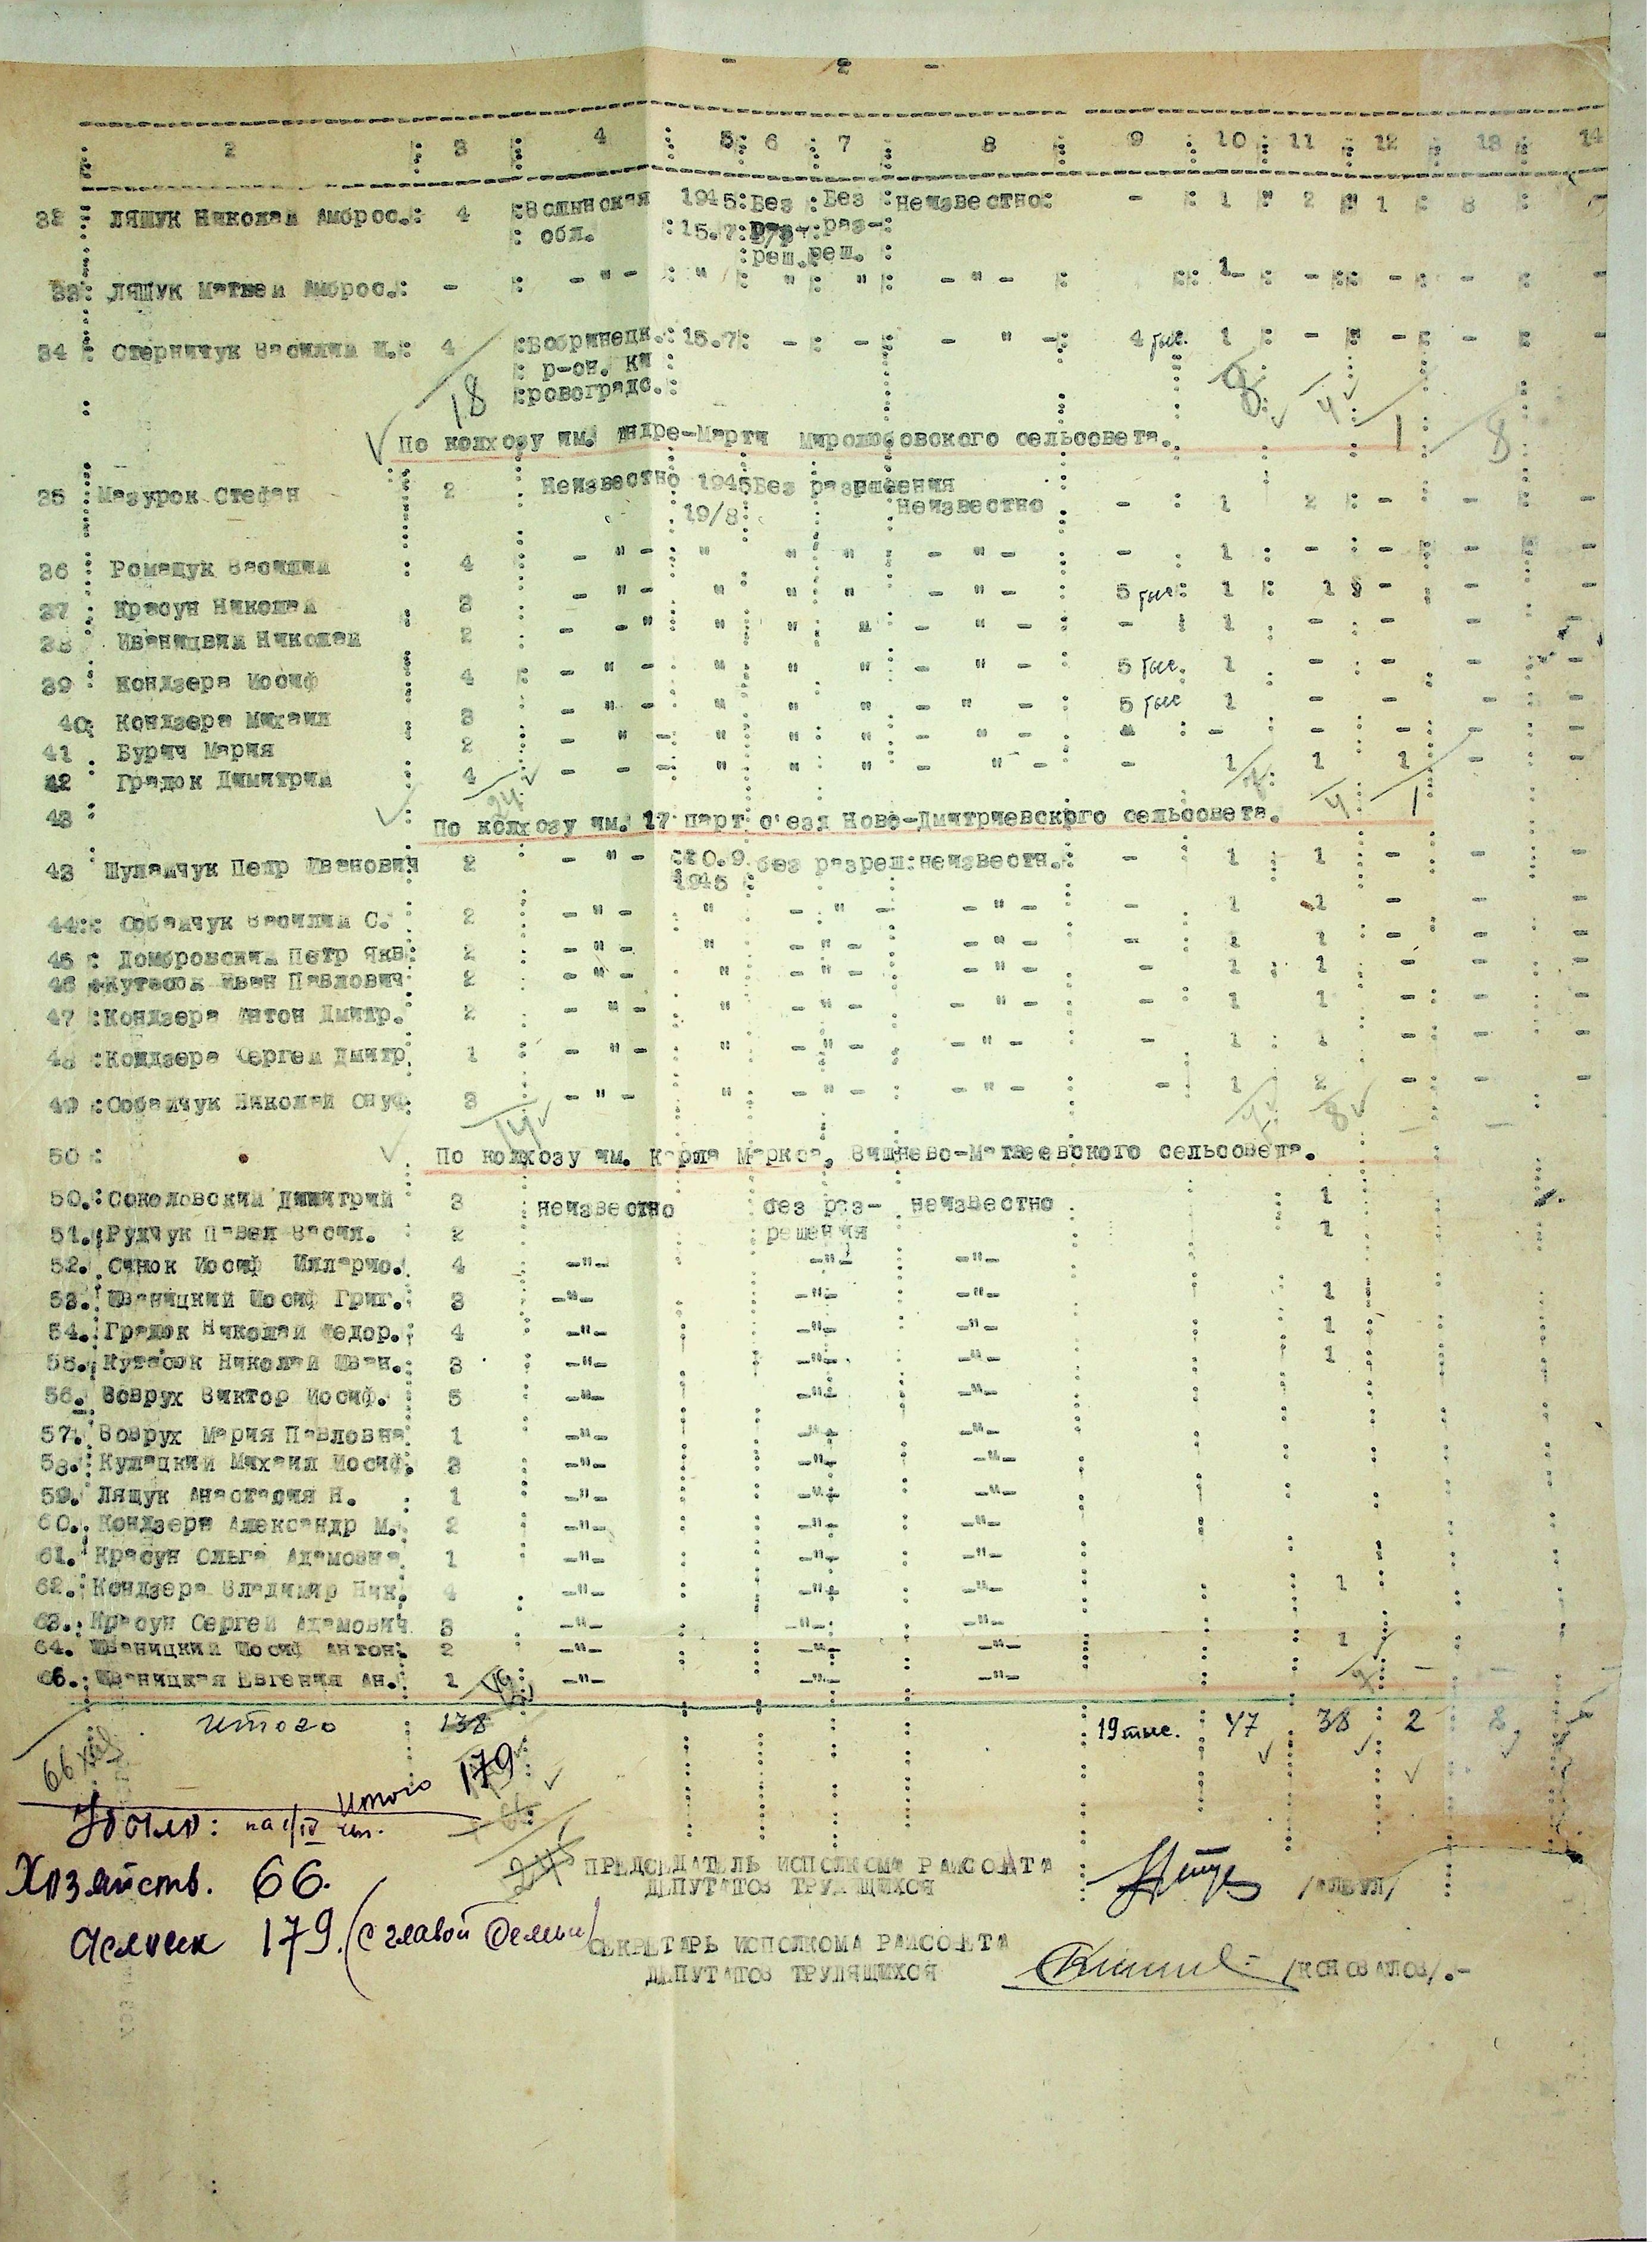 - 2 -
2 : 3 : 4 : 5: 6 : 7 : 8 : 9 : 10 : 11 : 12 : 13 : 14
32 : Ляшук Николай Амброс.: 4 :Волынская 1945:Без :Без :Неизвестно: - : 1 : 2 : 1 8 : -
: обл. :15.7: раз-: раз-:
:реш.реш. :
33: Ляшук Матвей Амброс.: - : - " - : " : " : " : - " - : 1 - : - : - : - : -
34 : Стерничук Василий И.: 4 :Бобринецк.:15.7: - : - : - " -: 4 тыс. 1 : - : - : - : -
: р-он. Ки
18 :ровоградс.: 4 1 8
По колхозу им. Андре-Марти Миролюбовского сельсовета.
35 Мазурок Стефан 2 Неизвестно 1945Без разрешения
19/8 Неизвестно - 1 2 : - - -
36 : Ромащук Василий : 4 - " - " " " - " - - 1 : - - - -
37 : Красун Николай 3 - " - " " " - " - 5 тыс: 1 : 1 - - -
38 : Иваницвий Николай 2 - - " " " " - " - - : 1 : - - - -
39 : Кондзера Иосиф 4 - " - " " " - " - 5 тыс. 1 - : - - -
40: Кондзера Михаил 3 - " - " " " - " - 5 тыс 1 - - - -
41 . Бурич Мария 2 - " - " " " - " - " - - - - -
42 : Градюк Димитрий 4 - - - " " " - " - - 1 1 1
43 : 24 7 4 1
По колхозу им. 17 парт с'езд Ново-Дмитриевского сельсовета.
43 Шулайчук Петр Иванович 2 - " - :10.9 без разреш:неизвестн.: - 1 : 1 - - -
1945
44:: Собайчук Василий С. 2 - " - " - " - - " - - 1 1 - - -
45 : Домбровский Петр Якв: 2 - " - " - " - - " - - 1 1 - - -
46 Кутасюк Иван Павлович 2 - " - " - " - - " - - 1 : 1 - - -
47 :Кондзера Антон Дмитр. 2 - " - " - " - - " - - : 1 1 - : - -
48 :Кондзера Сергей Дмитр 1 - " - " - " - - " - - 1 : 1 - - -
49 :Собайчук Николай Онуф: 3 - " - " - " - - " - - 1 2 - - -
14 7 8
50 : По колхозу им. Карла Маркса, Вишнево-Матвеевского сельсовета.
50.:Соколовский Димитрий 3 неизвестно без раз- неизвестно : 1
51.:Рудчук Павел Васил. : 2 решения 1
52. Синюк Иосиф Илларио. 4 -"- -"- -"-
53.:Иваницкий Иосиф Григ.: 3 -"- -"- -"- 1
54.:Градюк Николай Федор.: 4 -"- -"- -"- 1
55.:Кутасюк Николай Иван.: 3 -"- -"- -"- 1
56. Воврух Виктор Иосиф. 5 -"- -"- -"-
57. Воврух Мария Павловна 1 -"- -"- -"-
58.:Кулацкий Михаил Иосиф. 3 -"- -"- -"-
59. Лящук Анастасия Н. 1 -"- -"- -"-
60. Кондзера Александр М. 2 -"- -"- -"-
61. Красун Ольга Адамовна 1 -"- -"- -"-
62.:Кондзера Владимир Ник. 4 -"- -"- -"- 1
63.:Красун Сергей Адамович 3 -"- -"- -"-
64. Иваницкий Иосиф Антон: 2 -"- -"- -"- 1
66.:Иваницкая Евгения Ан. 1 -"- -"- -"-
Итого 138 19 тыс. 47 38 2 8
66 хоз
Итого 179
Убыло: на 1/IV
ПРЕДСЕДАТЕЛЬ ИСПОЛКОМА РАЙСОВЕТА
Хозяйств. 66. ДЕПУТАТОВ ТРУДЯЩИХСЯ /АЛБУЛ/
Человек 179. (с главой семьи) СЕКРЕТАРЬ ИСПОЛКОМА РАЙСОВЕТА
ДЕПУТАТОВ ТРУДЯЩИХСЯ /КОНОВАЛОВ/.-